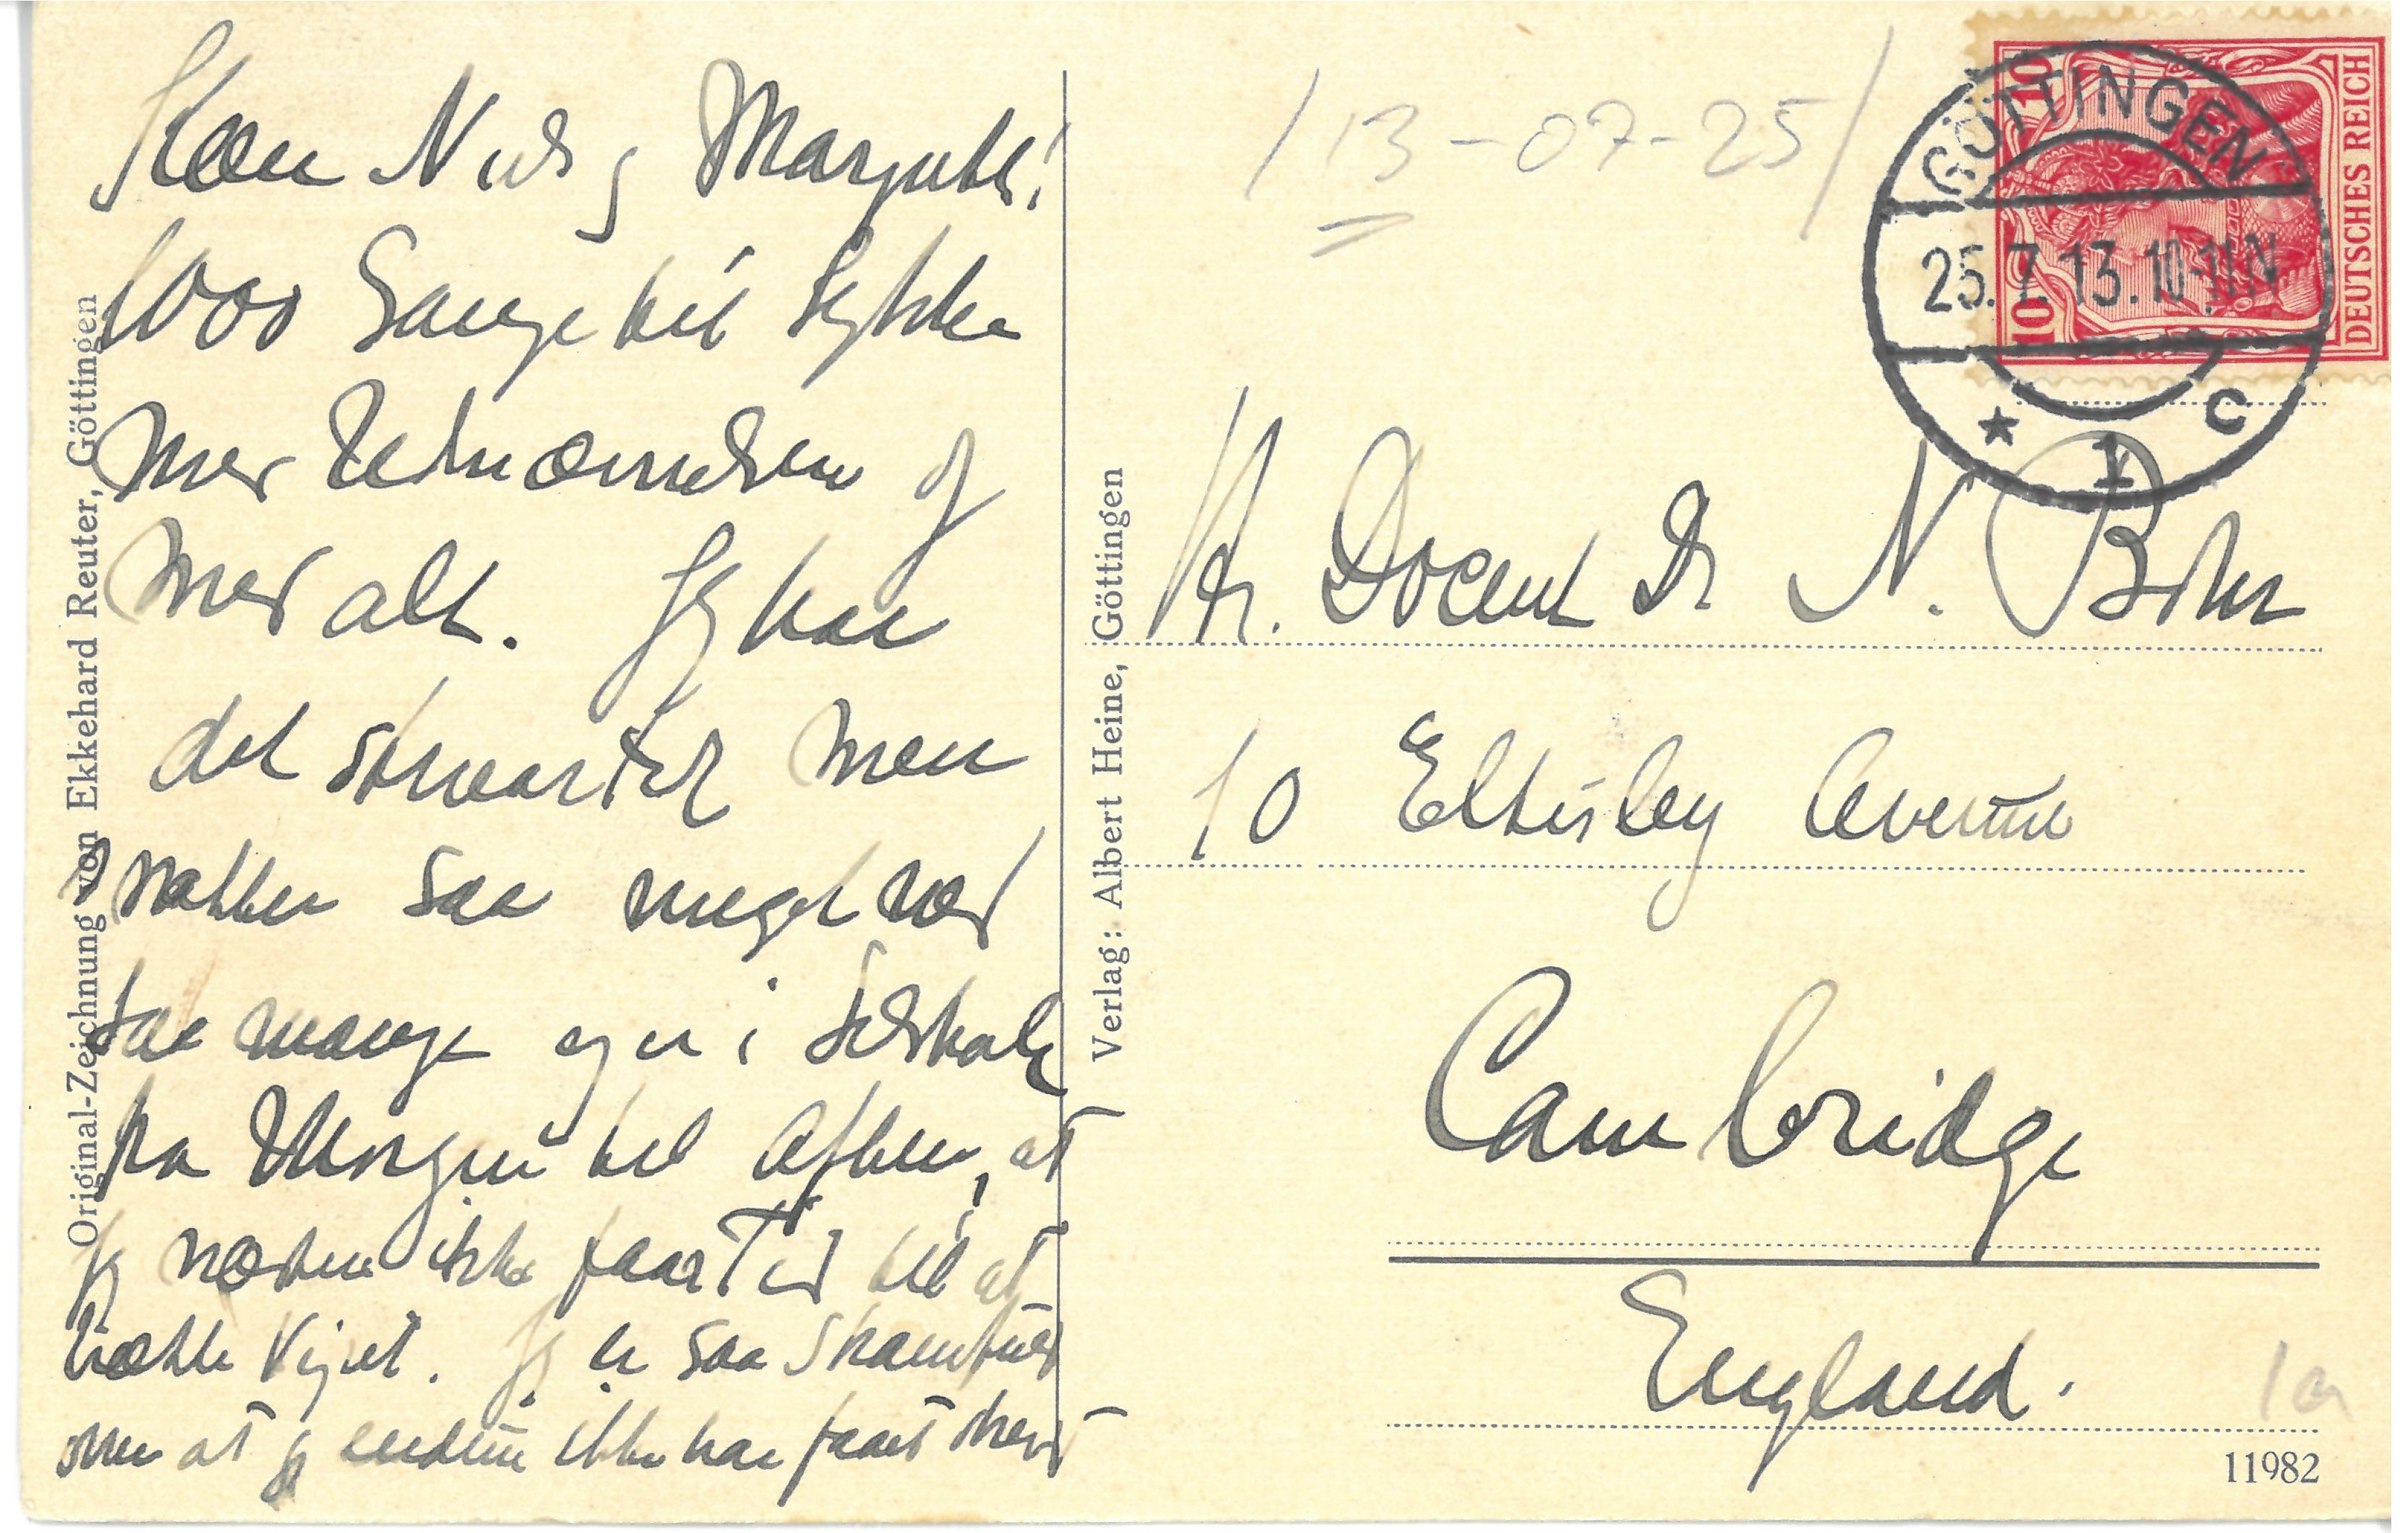 Kære Niels og Margrethe!
1000 Gange til Lykke
med Udnævnelsen og
med alt. Jeg har
det storartet men
snakker saa meget med
saa mange og er i Selskab
fra Morgen til Aften, at
jeg næsten ikke faar Tid til at
trække Vejret. Jeg er saa skamfuld
over at jeg endnu ikke har faaet skrevet
/13-07-25/
DEUTSCHES REICH
10
10
GÖTTINGEN
25.7.13.10-11N
* 1 c
Hr. Docent Dr N. Bohr
10 Eltisley Avenue
Cambridge
England.
11982
Original-Zeichnung von Ekkehard Reuter, Göttingen
Verlag: Albert Heine, Göttingen